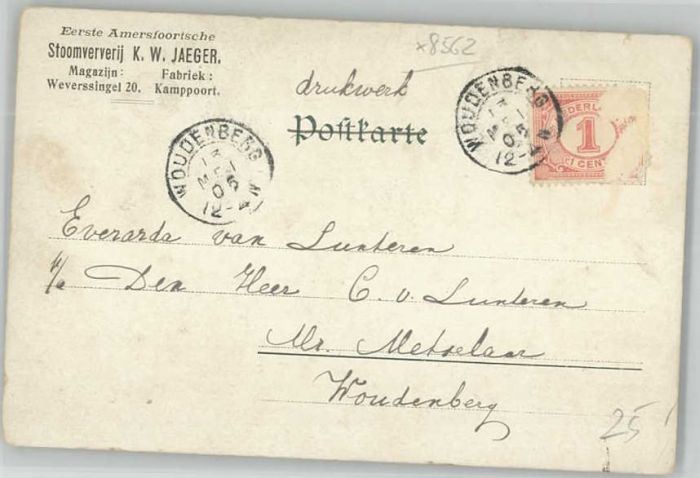 Eerste Amersfoortsche
Stoomververij K. W. JAEGER.
Magazijn: Fabriek:
Weverssingel 20. Kamppoort.
x8562
drukwerk
Postkarte
WOUDENBERG
13
MEI
05
12-
WOUDENBERG
13
05
12-
NEDERLAND
1
CENT
Everarda van Lunteren
p/a Den Heer C. v. Lunteren
Mr. Metselaar
Woudenberg
25